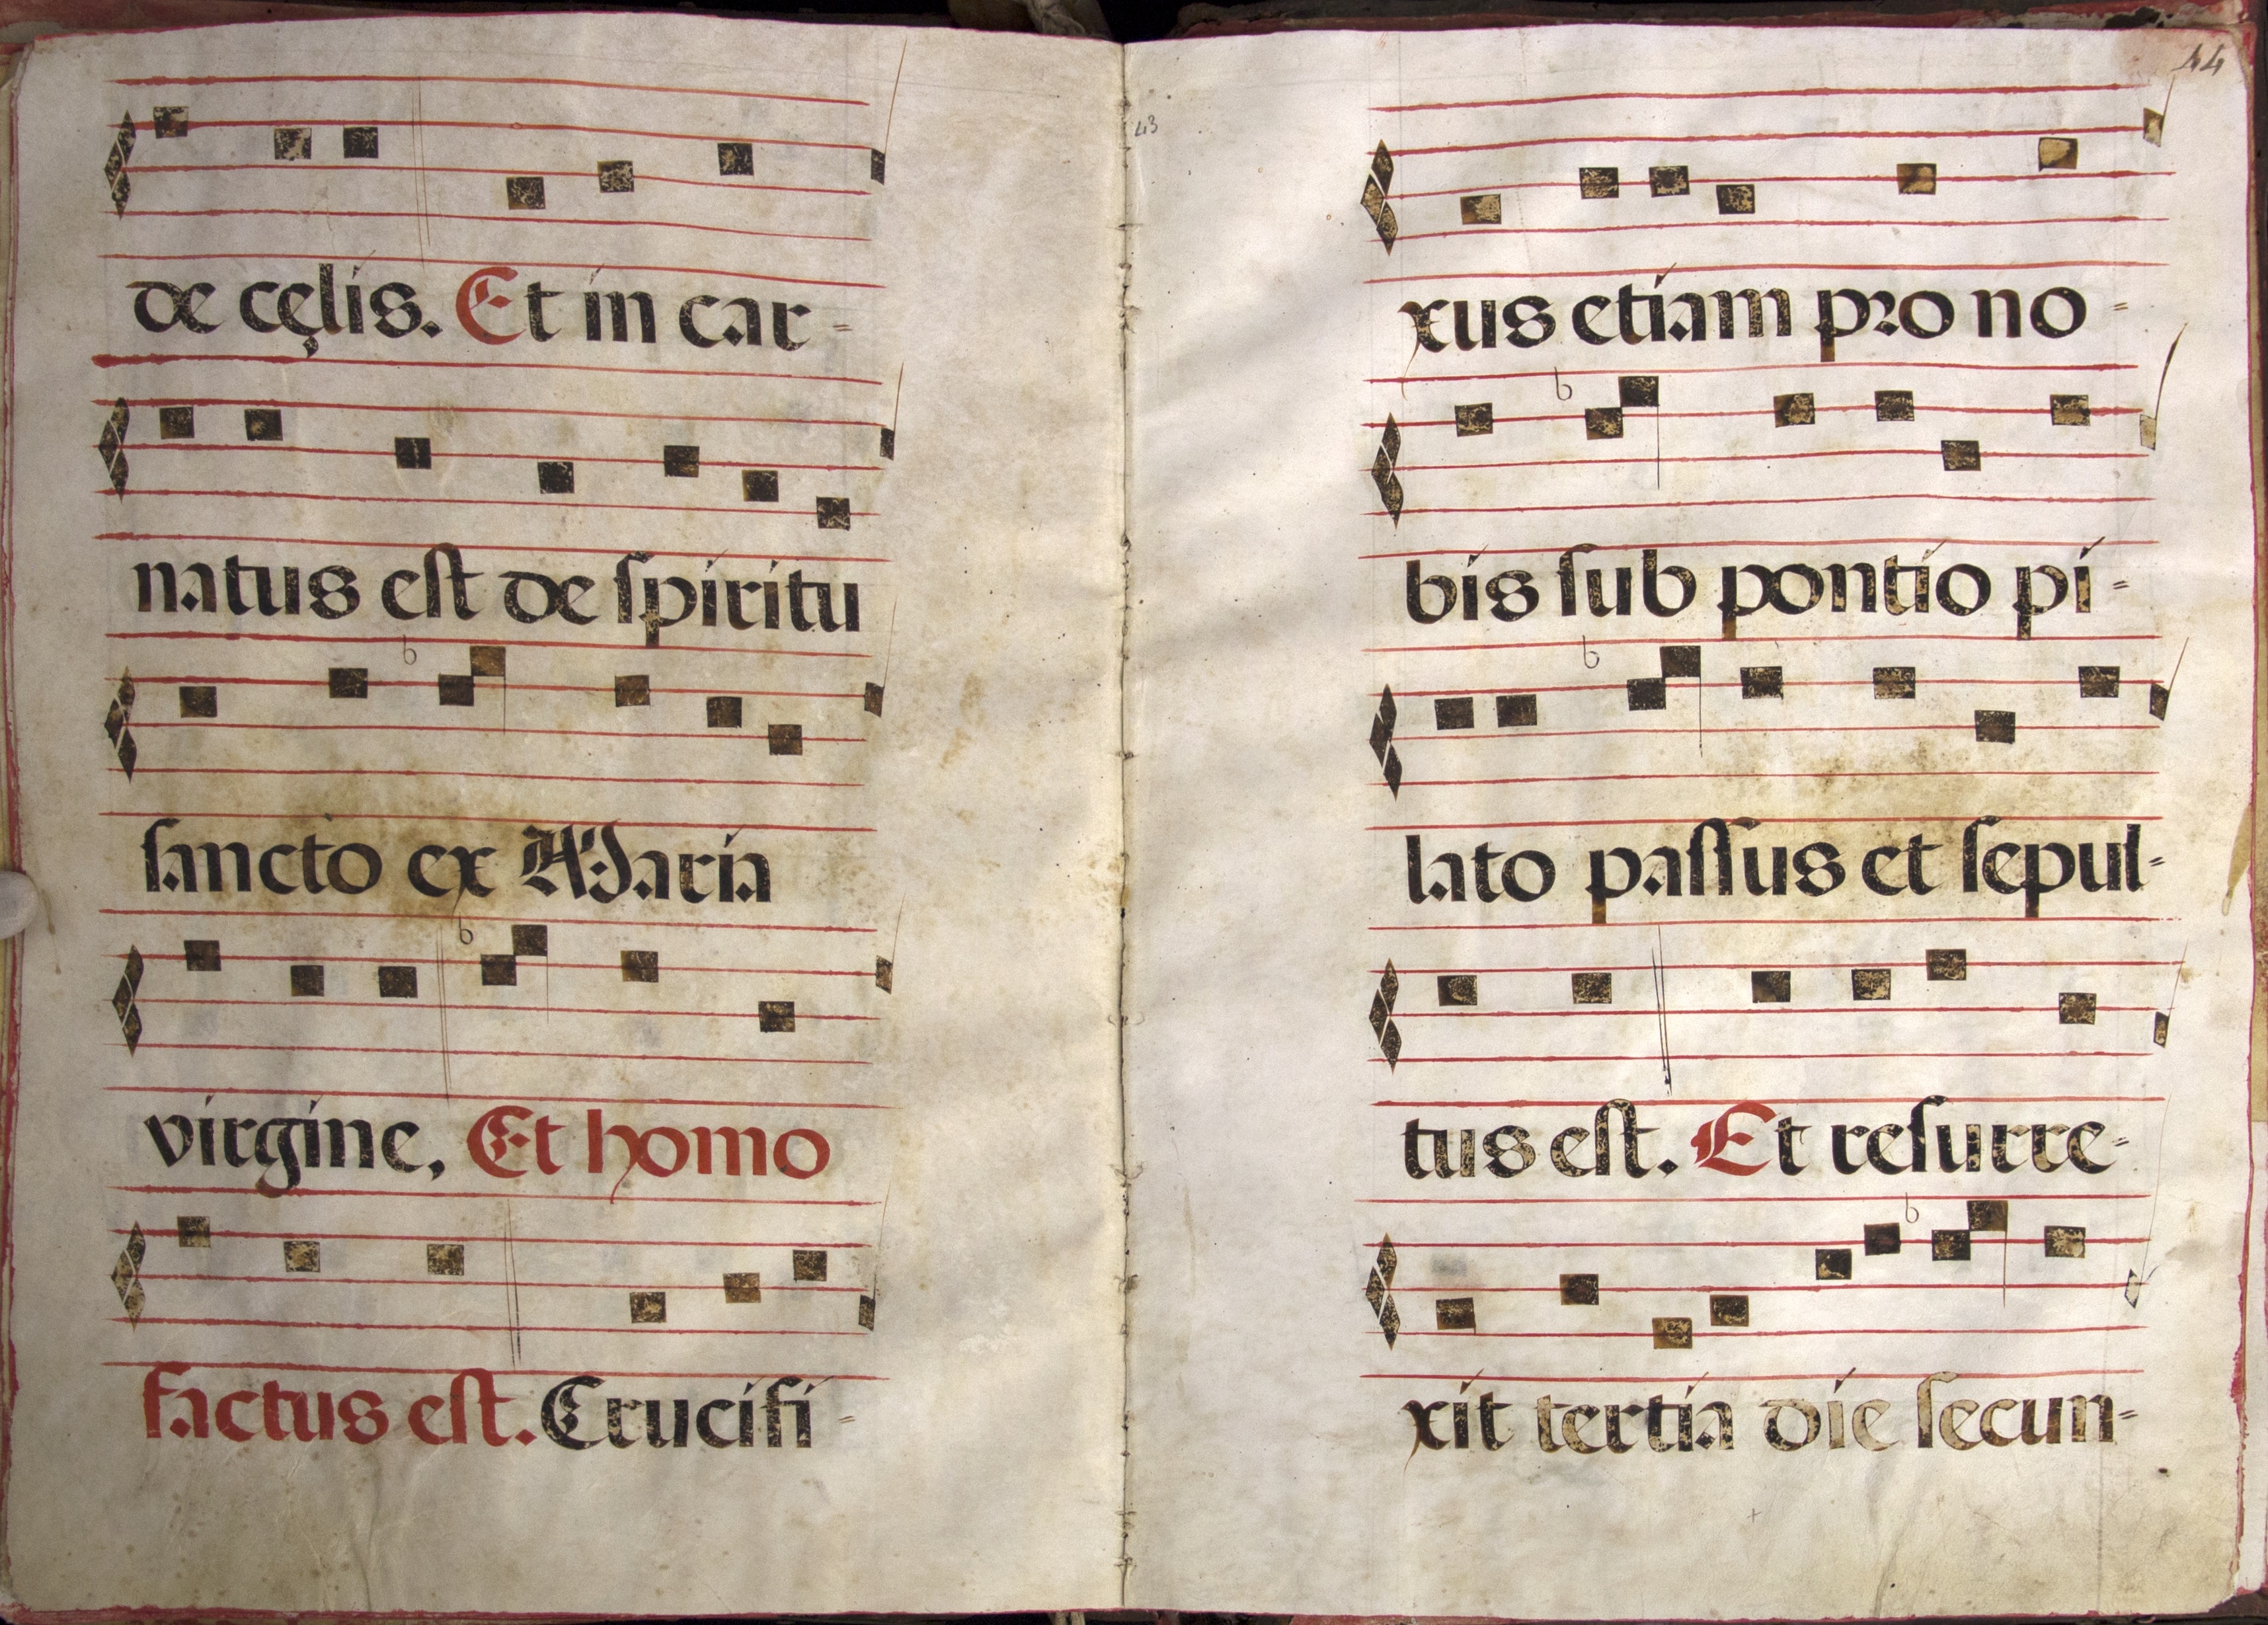 de cęlis. Et in car=
natus est de spiritu
sancto ex Maria
virgine, Et homo
factus est. Crucifi=
43
44
xus etiam pro no=
bis sub pontio pi=
lato passus et sepul=
tus est. Et resurre=
xit tertia die secun=